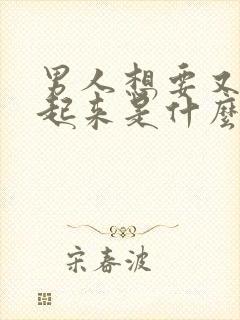 男人想要又
起来是什麼
宋春波